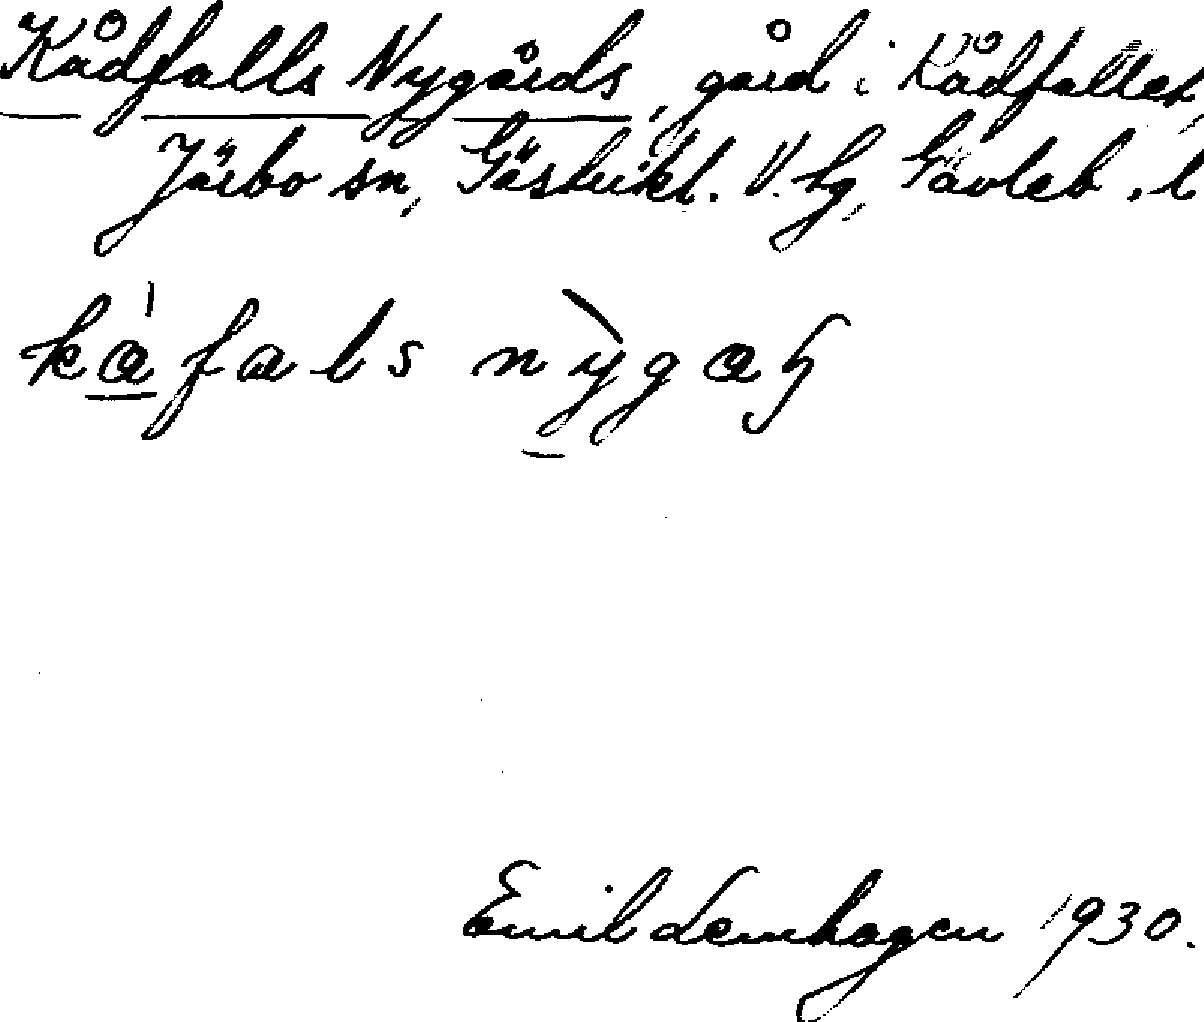 Kådfalls Nygårds, gård i Kådfallet,
Järbo sn, Gästrikl. V. tg, Gävleb. l
Emil Lernhagen 1930.